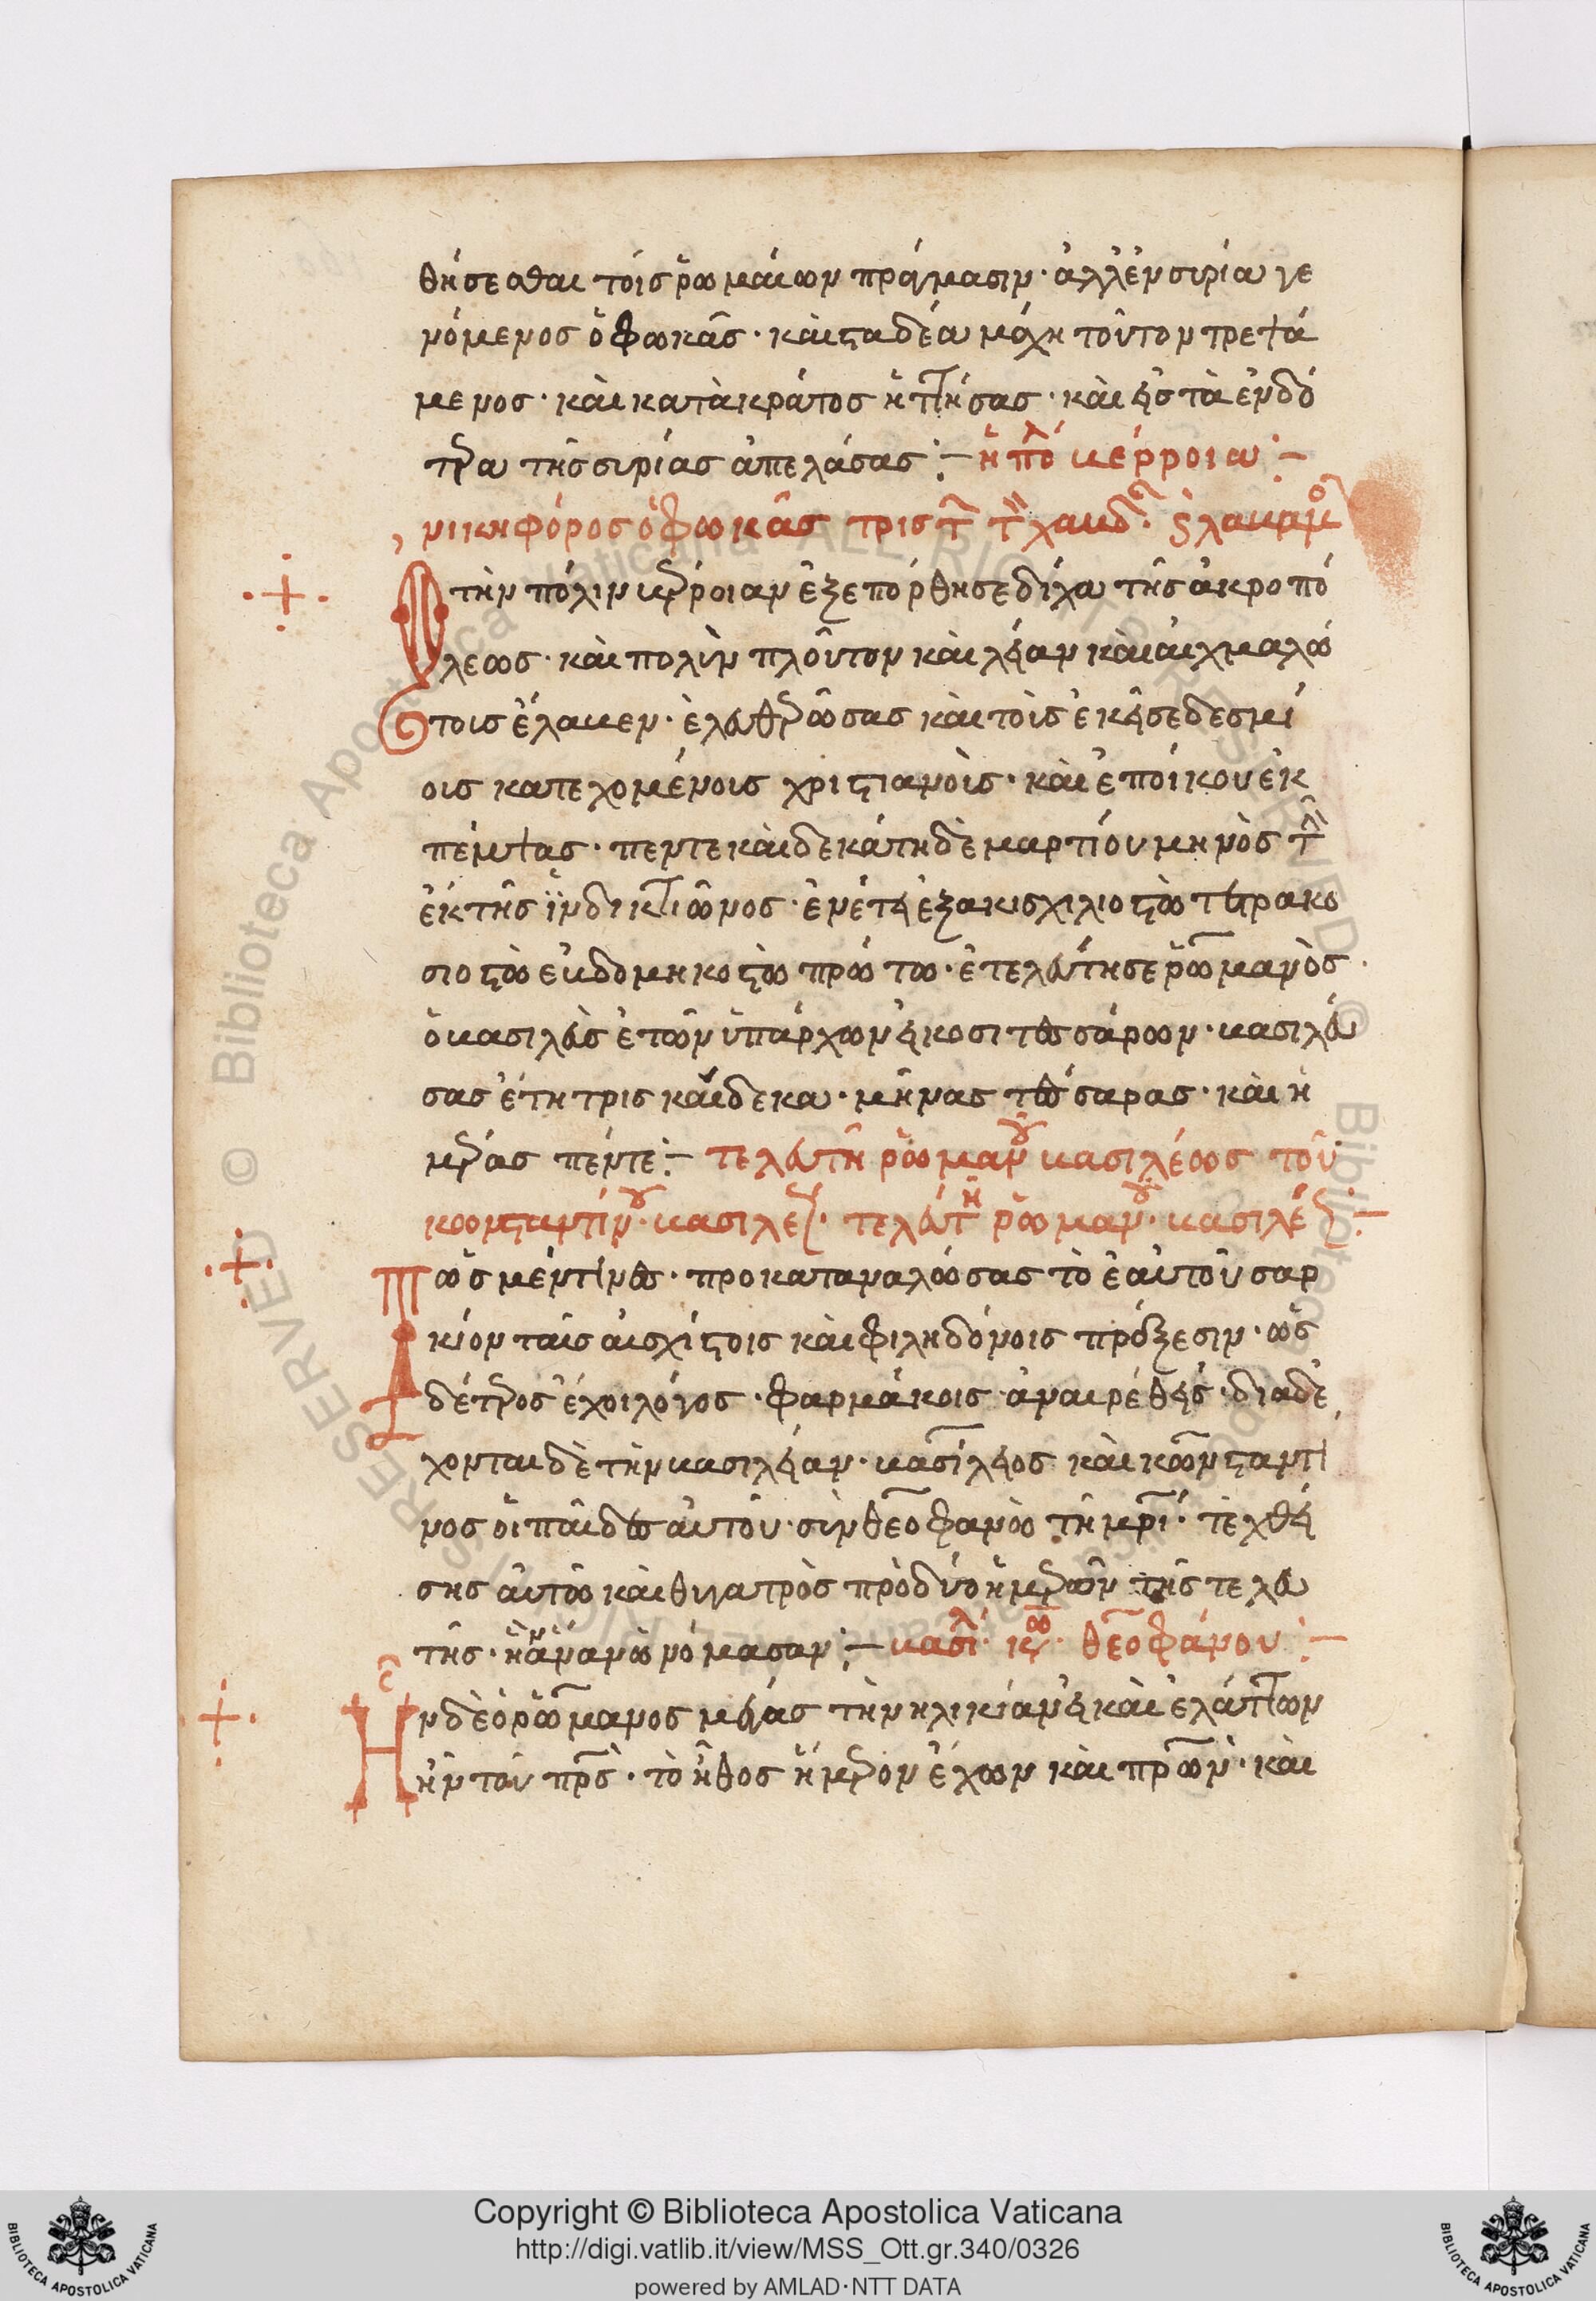 θήσεσθαι τοῖς ῥωμαίων πράγμασιν· ἀλλ' ἐν συρία γε
νόμενος ὁ φωκᾶς· καὶ σταδέα μάχη τοῦτον τρεψά
μενος· καὶ κατὰ κράτος ἡττήσας· καὶ εἰς τὰ ἐνδό
τερα τῆς συρίας ἀπελάσας :– ἡ πόλ βέρροια :–
νικηφόρος ὁ φωκᾶς
τὴν πόλιν βέρροιαν ἐξεπόρθησε δίχα τῆς ἀκροπό
λεως· καὶ πολὺν πλοῦτον καὶ λείαν καὶ αἰχμαλώ
τοις ἔλαβεν· ἐλευθερώσας καὶ τοῖς ἐκεῖσε δεσμί
οις κατεχομένοις χριστιανοῖς· καὶ ἐποίκου ἐκ
πέμψας· πεντεκαιδεκάτη δὲ μαρτίου μηνὸς τῆς
ἕκτης ἰνδικτιῶνος· ἐν ἔτει ἑξακισχιλιοστῶ τετρακο
σιοστῶ ἑβδομηκοστῶ πρώτω· ἐτελεύτησε ῥωμανὸς
ὁ βασιλεὺς ἐτῶν ὑπάρχων εἴκοσι τεσσάρων· βασιλεύ
σας ἔτη τρισκαίδεκα· μῆνας τέσσαρας· καὶ ἡ
μέρας πέντε :– τελευτὴ ῥωμανοῦ βασιλέως τοῦ
κωνσταντίνου· βασιλέως· τελευτὴ ῥωμανοῦ· βασιλέως :–
Ὡς μέν τινες· προκαταναλώσας τὸ ἑαυτοῦ σαρ
κίον ταῖς αἰσχίστοις καὶ φιληδόνοις πράξεσιν· ὡς
δ' ἕτερος ἔχοι λόγος· φαρμάκοις ἀναιρεθείς· διαδέ
χονται δὲ τὴν βασιλείαν· βασίλειος καὶ κωνσταντῖ
νος οἱ παῖδες αὐτοῦ· σὺν θεοφανὼ τῆ μρί· τεχθεί
σης αὐτῶ καὶ θυγατρὸς πρὸ δύο ἡμερῶν τῆς τελευ
τῆς· ἣν ἄναν ὠνόμασαν :– βασιλ· θεοφάνου :–
Ἦν δὲ ὁ ῥωμανος νέας τὴν ἡλικίαν εἰ καὶ ἐλάττων
ἦν τοῦ πρς· τὸ ἦθος ἥμερον ἔχων καὶ πρῶν· καὶ
Copyright © Biblioteca Apostolica Vaticana
http://digi.vatlib.it/view/MSS_Ott.gr.340/0326
powered by AMLAD·NTT DATA